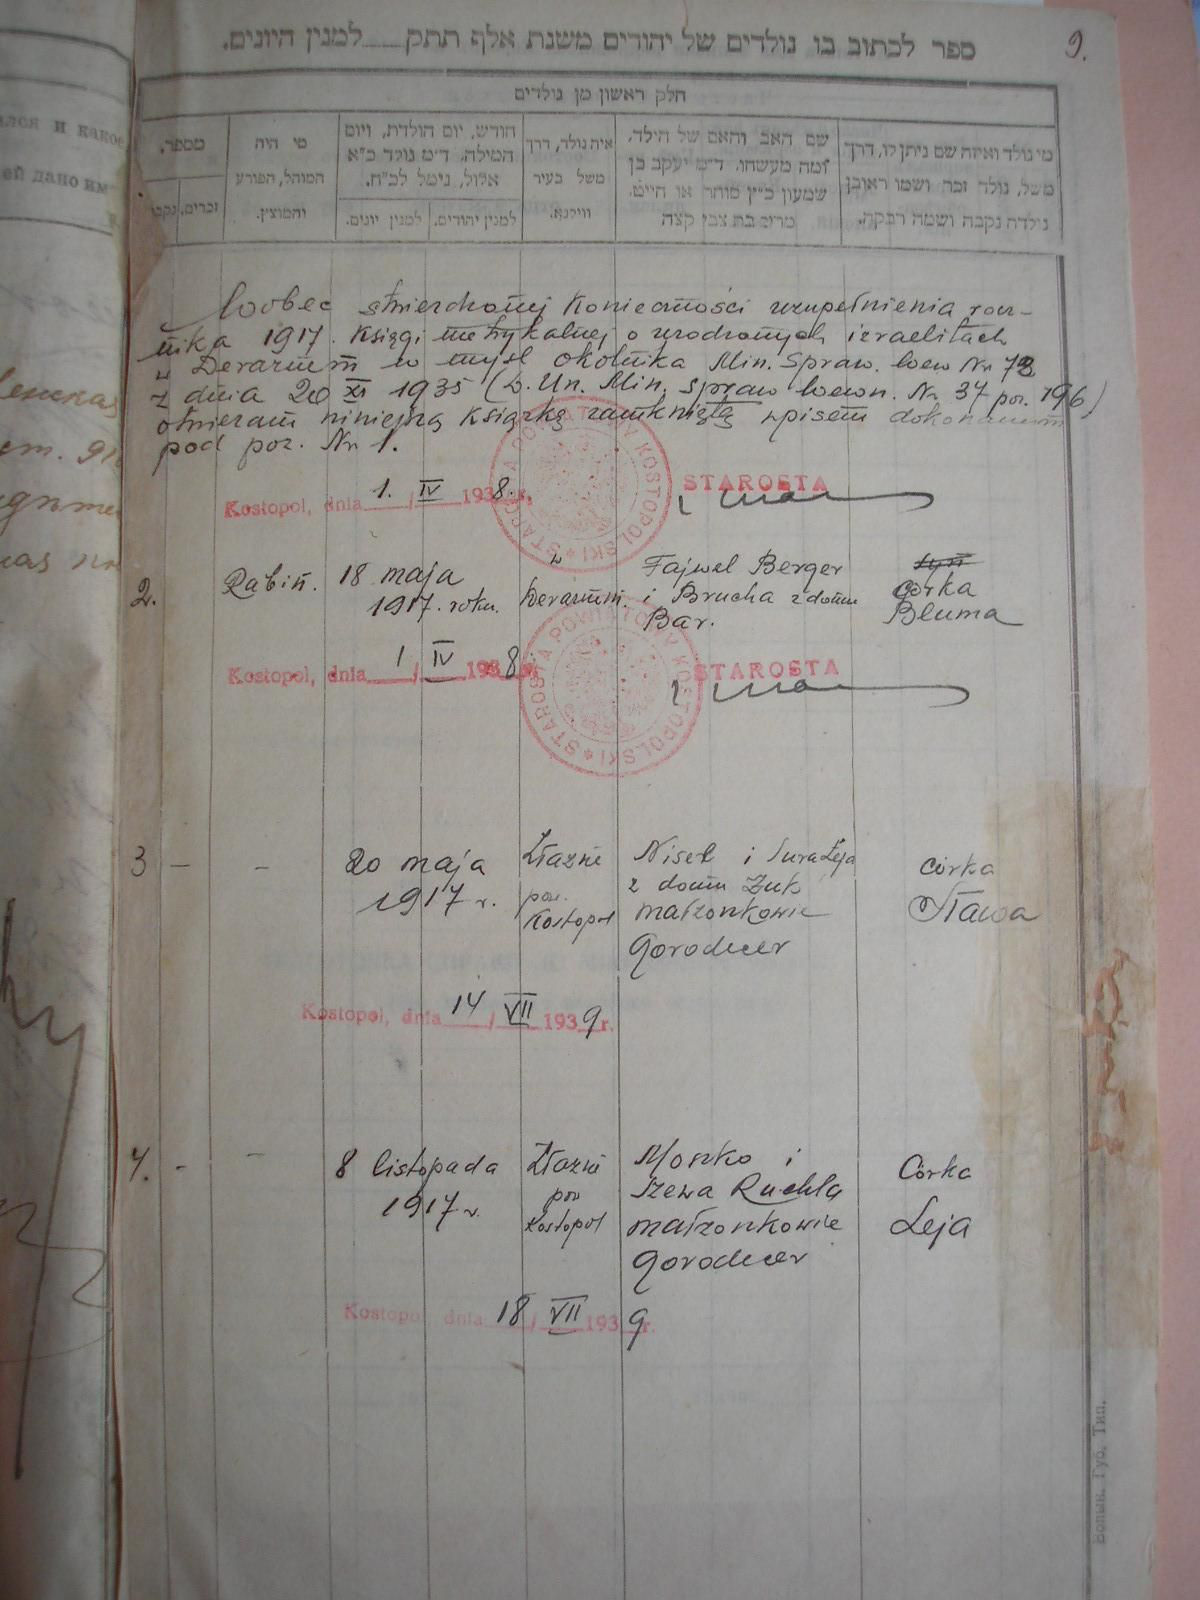 9.
ספר לכתוב בו נולדים של יהודים משנת אלף תתק למנין היונים.
חלק ראשון מן נולדים
מי נולד ואיזה שם ניתן לו, דרך משל, נולד זכר ושמו ראובן נולדה נקבה ושמה רבקה.
שם האב והאם של הילד, ומה מעשהו. ד"מ יעקב בן שמעון כ"ץ סוחר או חייט. מרים בת צבי קצה
איה נולד, דרך משל בעיר ווילנא.
חודש, יום הולדת, ויום המילה. ד"מ נולד כ"א אלול, נימל לכ"ח.
למנין יהודים. למנין יונים.
מי היה המוהל, הפורע והמוצץ.
מספר.
זכרים,
Wobec stwierdzonej konieczności uzupełnienia rocz-
nika 1917. księgi metrykalnej o urodzonych izraelitach
w Derażnem w myśl okólnika Min. Spraw. Wew Nr 78
z dnia 20 XI 1935 (D. Un. Min. Spraw Wewn. Nr. 37 poz. 196)
otwieram niniejszą książkę zamkniętą wpisem dokonanym
pod poz. Nr 1.
Kostopol, dnia 1. / IV 1938. r. STAROSTA
STAROSTA POWIATOWY KOSTOPOLSKI
2. Rabin. 18 maja 1917. roku. w Derażnem. Fajwel Berger i Brucha z domu Bar. syn córka Bluma
Kostopol, dnia 1 / IV 1938 r. STAROSTA
STAROSTA POWIATOWY KOSTOPOLSKI
3 — — 20 maja 1917 r. Złaźne pow. Kostopol Nisel i Sura Leja z domu Żuk małżonkowie Gorodecer córka Sława
Kostopol, dnia 14 / VII 1939 r.
4. - - 8 listopada 1917 r. Złaźne pow Kostopol Moszko i Szewa Ruchla małżonkowie Gorodecer Córka Leja
Kostopol dnia 18 / VII 1939 r.
Волын. Губ. Тип.